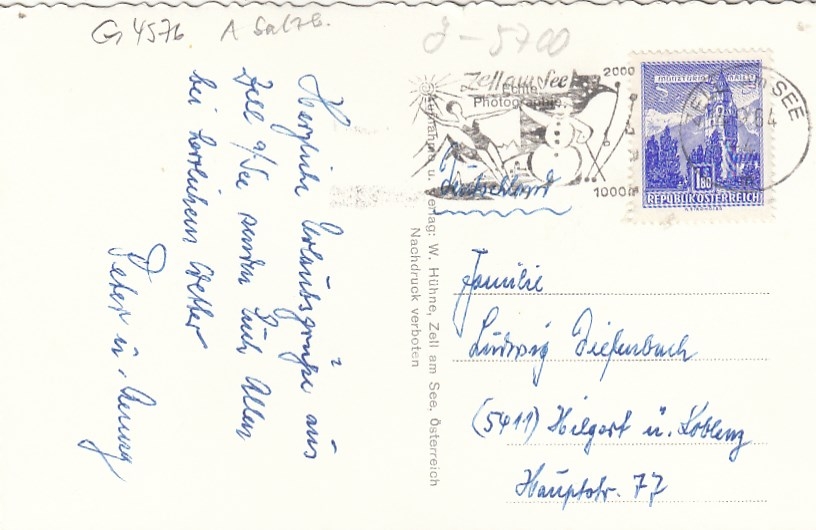 G 4576 A Salzb.
J-5700
Herzliche Urlaubsgrüße aus
Zell a/See senden Euch Allen
bei herrlichem Wetter
Peter u.
Zell am See
2000
1000m
Echte
Photographie
SEE
64
1.80
REPUBLIK ÖSTERREICH
Deutschland
Aufnahme u. Verlag: W. Hühne, Zell am See, Österreich
Nachdruck verboten
Familie
Ludwig Diefenbach
(5411) Hilgert ü. Koblenz
Hauptstr. 77